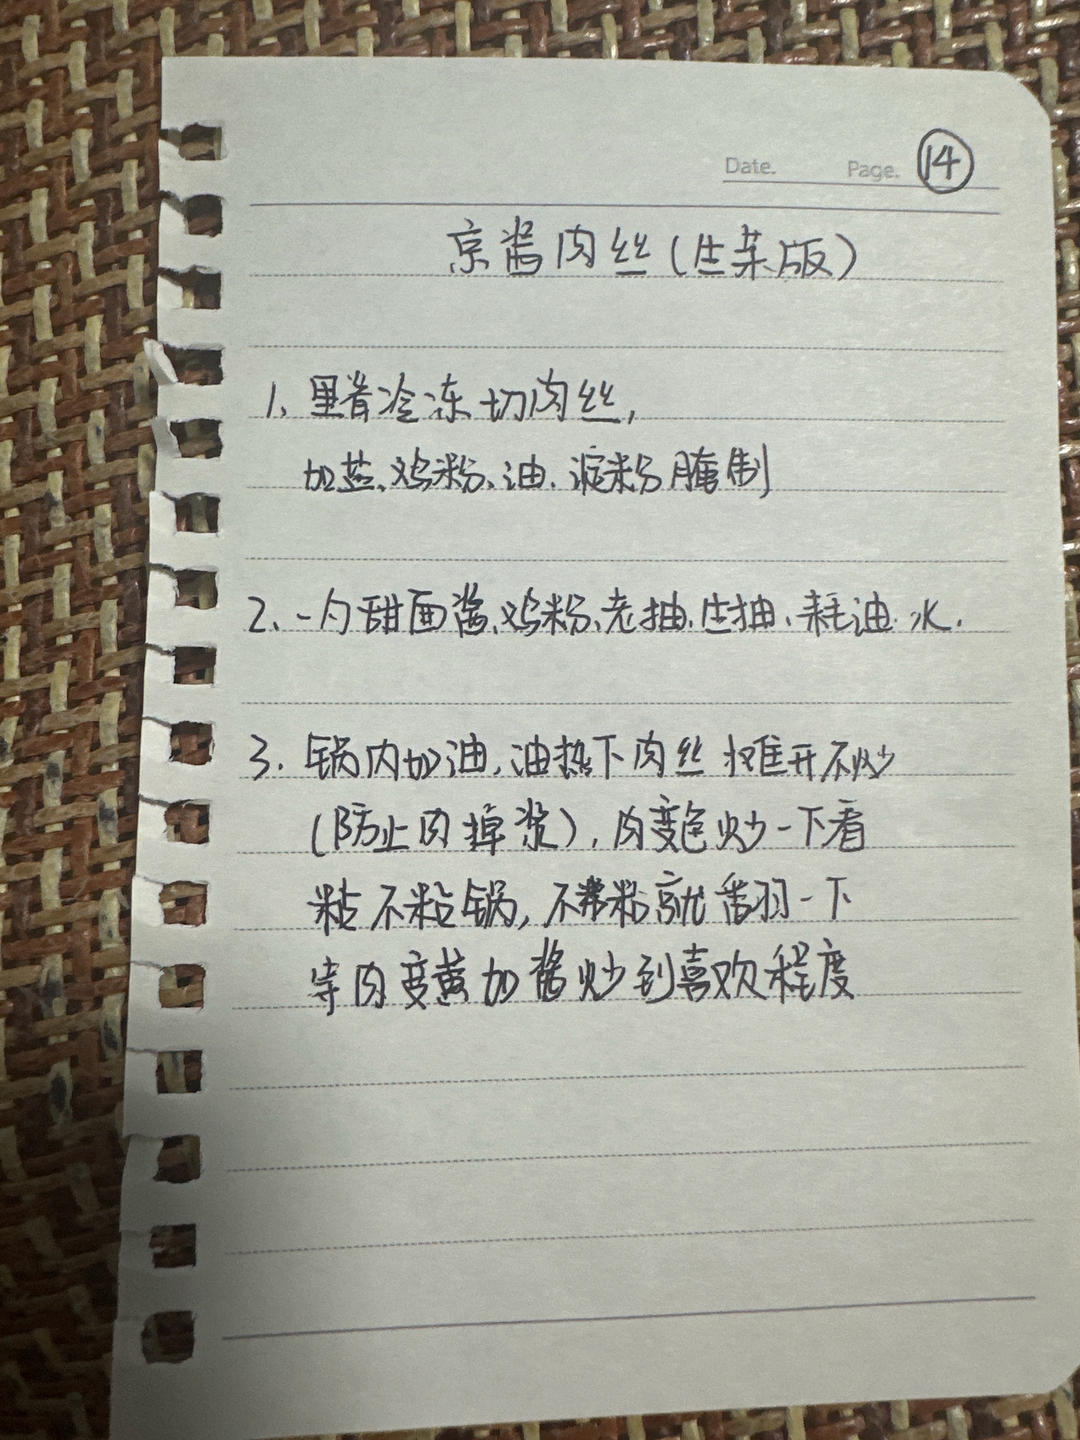 Date. Page. 14
京酱肉丝(生菜版)
1、里脊冷冻切肉丝,
加盐、鸡粉、油、淀粉腌制
2、一勺甜面酱、鸡粉、老抽、生抽、耗油、水.
3. 锅内加油,油热下肉丝 摊开不炒
(防止肉掉浆),肉变色炒一下看
粘不粘锅,不粘就翻一下
等肉变黄加酱炒到喜欢程度